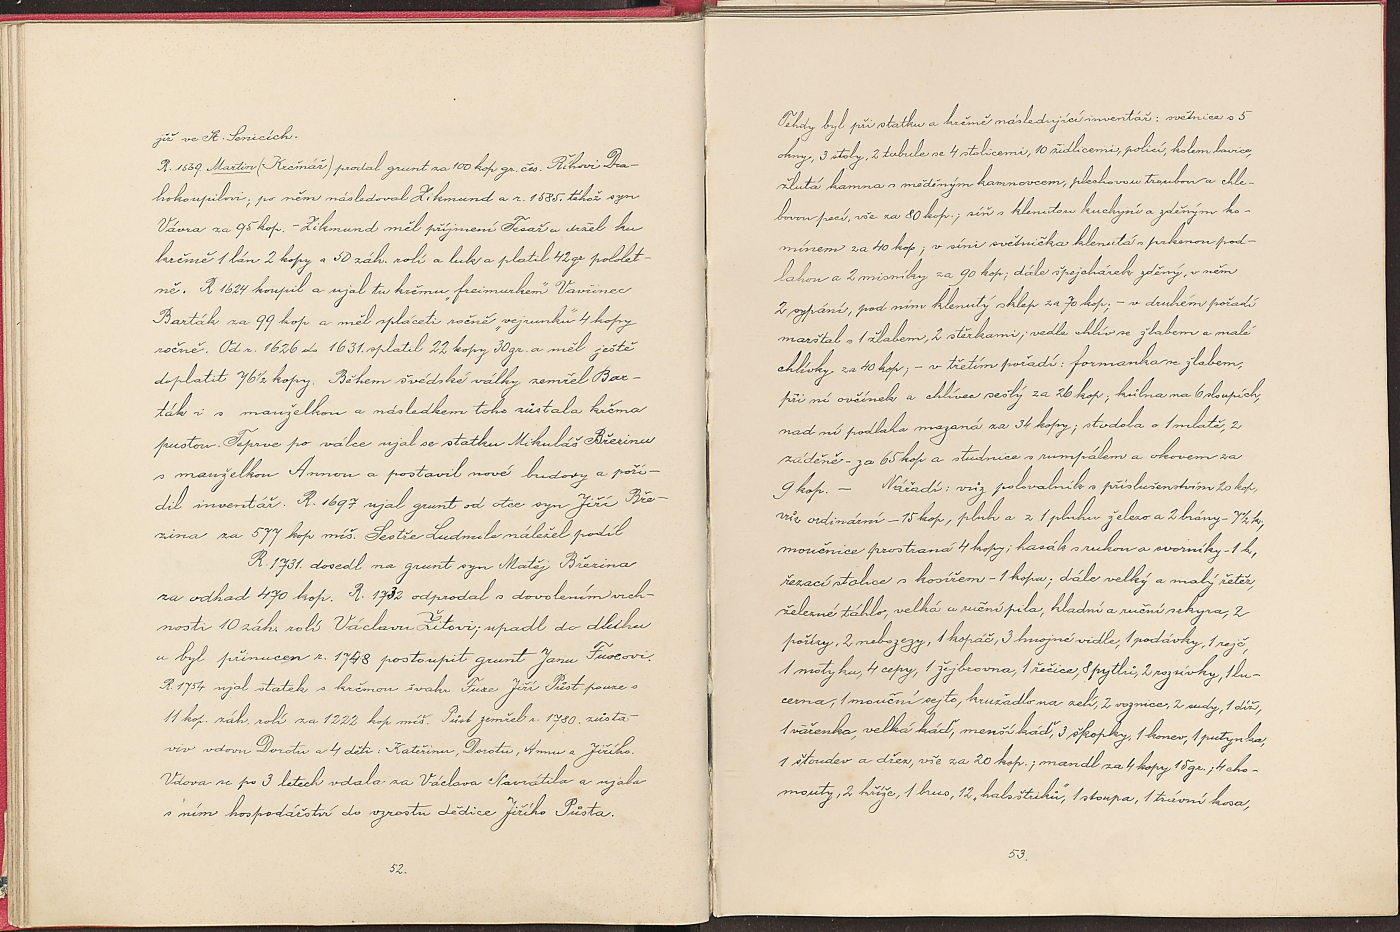 již ve St. Senicích.
R. 1569 Martin (Krčmář) prodal grunt za 100 kop gr. čes. Říhovi Dra-
hokoupilovi; po něm následoval Zikmund a r. 1585. téhož syn
Vávra za 95 kop. - Zikmund měl příjmení Tesař a držel ku
krčmě 1 lán 2 kopy a 50 záh. rolí a luk a platil 42 gr pololet-
ně. R 1624 koupil a ujal tu krčmu „freimarkem" Vavřinec
Barták za 99 kop a měl spláceti ročně „vejrunku" 4 kopy
ročně. Od r. 1626 do 1631. splatil 22 kopy 30 gr. a měl ještě
doplatit 76½ kopy. Během švédské války zemřel Bar-
ták i s manželkou a následkem toho zůstala krčma
pustou. Teprve po válce ujal se statku Mikuláš Březina
s manželkou Annou a postavil nové budovy a poří-
dil inventář. R. 1697 ujal grunt od otce syn Jiří Bře-
zina za 577 kop míš. Sestře Ludmile náležel podíl
R. 1731. dosedl na grunt syn Matěj Březina
za odhad 470 kop. R. 1732 odprodal s dovolením vrch-
nosti 10 záh. rolí Václavu Žitovi; upadl do dluhu
a byl přinucen r. 1748 postoupit grunt Janu Fuxovi.
R. 1754 ujal statek s krčmou švakr Fuxe Jiří Půst pouze s
11 kop. záh. rolí za 1222 kop míš. Půst zemřel r. 1780. zůsta-
viv vdovu Dorotu a 4 děti: Kateřinu, Dorotu, Annu a Jiřího.
Vdova se po 3 letech vdala za Václava Navrátila a ujala
s ním hospodářství do vzrostu dědice Jiřího Půsta.
52.
Tehdy byl při statku a krčmě následující inventář: světnice s 5
okny, 3 stoly, 2 tabule se 4 stolicemi, 10 židlicemi, policí, kolem lavice,
žlutá kamna s měděným kamnovcem, plechovou troubou a chle-
bovou pecí, vše za 80 kop.; síň s klenutou kuchyní a zděným ko-
mínem za 40 kop; v síni světnička klenutá s prkenou pod-
lahou a 2 misníky za 90 kop; dále špejchárek zděný, v něm
2 sypání, pod ním klenutý sklep za 70 kop; - v druhém pořadí
maštal s 1 žlabem, 2 stěrkami; vedle chlív se žlabem a malé
chlívky za 40 kop; - v třetím pořadí: formanka se žlabem,
při ní ovčínek a chlívec sešlý za 26 kop; kůlna na 6 sloupích,
nad ní podlaha mazaná za 34 kopy; stodola o 1 mlatě, 2
záděně - za 65 kop a studnice s rumpálem a okovem za
9 kop. - Nářadí: vůz polovalník s příslušenstvím 20 kop,
vůz ordinární - 15 kop, pluh a z 1 pluhu železo a 2 brány - 7½ k,
moučnice prostraná 4 kopy; hasák s rukou a svorníky - 1 k,
řezací stolice s kosířem - 1 kopa; dále velký a malý řetěz,
železné táhlo, velká a ruční pila, hladní a ruční sekyra, 2
pořízy, 2 nebozezy, 1 kopáč, 3 hnojné vidle, 1 podávky, 1 rejč,
1 motyku, 4 cepy, 1 žejbrovna, 1 řečice, 8 pytlů, 2 rozsívky, 1 lu-
cerna, 1 mouční sejto, kružadlo na zelí, 2 voznice, 2 sudy, 1 díž,
1 vářenka, velká káď, menší káď, 3 škopky, 1 konev, 1 putynka,
1 štoudev a dřez, vše za 20 kop.; mandl za 4 kopy 15 gr.; 4 cho-
mouty, 2 kříže, 1 brus, 12 „halsštriků", 1 stoupa, 1 trávní kosa,
53.